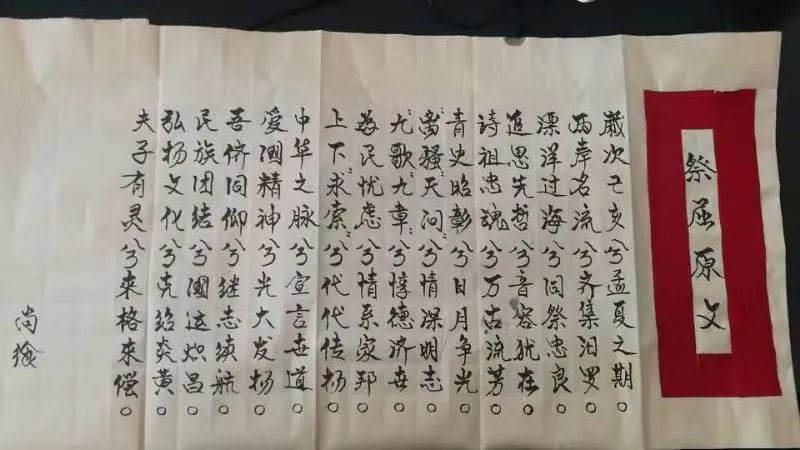 祭屈原文
岁次己亥兮孟夏之期。
两岸名流兮齐集汨罗。
漂洋过海兮同祭忠良。
追思先哲兮音容犹在。
诗祖忠魂兮万古流芳。
青史昭彰兮日月争光。
“离骚”“天问”兮情深明志。
“九歌”“九章”兮惇德济世。
为民忧虑兮情系家邦。
上下“求索”兮代代传扬。
中华之脉兮宣言世道。
爱国精神兮光大发扬。
吾侪同仰兮继志续航。
民族团结兮国运炽昌。
弘扬文化兮克绍炎黄。
夫子有灵兮来格来偿。
尚飨